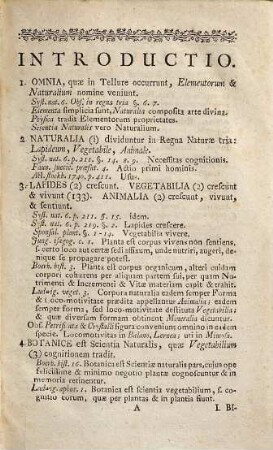 INTRODUCTIO.
1. OMNIA, quæ in Tellure occurrunt, Elementorum &
Naturalium nomine veniunt.
Syst. nat. 6. Obs. in regna tria §. 6. 7.
Elementa simplicia sunt, Naturalia composita arte divina.
Physica tradit Elementorum proprietates.
Scientia Naturalis vero Naturalium.
2. NATURALIA (1) dividuntur in Regna Naturæ tria:
Lapideum, Vegetabile, Animale.
Syst. nat. 6. p. 211. §. 14. & 9. Necessitas cognitionis.
Faun. suecic. præfat. 4. Adio primi hominis.
Act. stockh. 1740. p. 411. Usus.
3. LAPIDES (2) crescunt. VEGETABILIA (2) crescunt
& vivunt (133). ANIMALIA (2) crescunt, vivunt,
& sentiunt.
Syst. nat. 6. p. 211. §. 15. Idem.
Syst. nat. 6. p. 219. §. 2. Lapides crescere.
Sponsal. plant. §. 1-14. Vegetabilia vivere.
Jung. isagog. c. 1. Planta est corpus vivens non sentiens,
s. certo loco aut certæ sedi affixum, unde nutriri, augeri, denique
se propagare potest.
Boerh. hist. 3. Planta est corpus organicum, alteri cuidam
corpori cohærens per aliquam partem sui, per quam Nutrimenti
& Incrementi & Vitæ materiem capit & trahit.
Ludwig. veget. 3. Corpora naturalia eadem semper Forma
& Loco-motivitate prædita appellantur Animalia; eadem
semper forma, sed loco-motivitate destituta Vegetabilia
& quæ diversam formam obtinent Mineralia dicuntur.
Obs. Petrificata & Crystalli figura conveniunt omnino in eadem
specie. Locomotivitas in Balano, Lernea; ut in Mimosa.
4. BOTANICE est Scientia Naturalis, quæ Vegetabilium
(3) cognitionem tradit.
Boerh. hist. 16. Botanica est Scientiæ naturalis pars, cujus ope
felicissime & minimo negotio plantæ cognoscuntur & in
memoria retinentur.
Ludwig. aphor. 1. Botanica est scientia vegetabilium, s. cognitio
eorum, quæ per plantas & in plantis fiunt.
A I. BI-